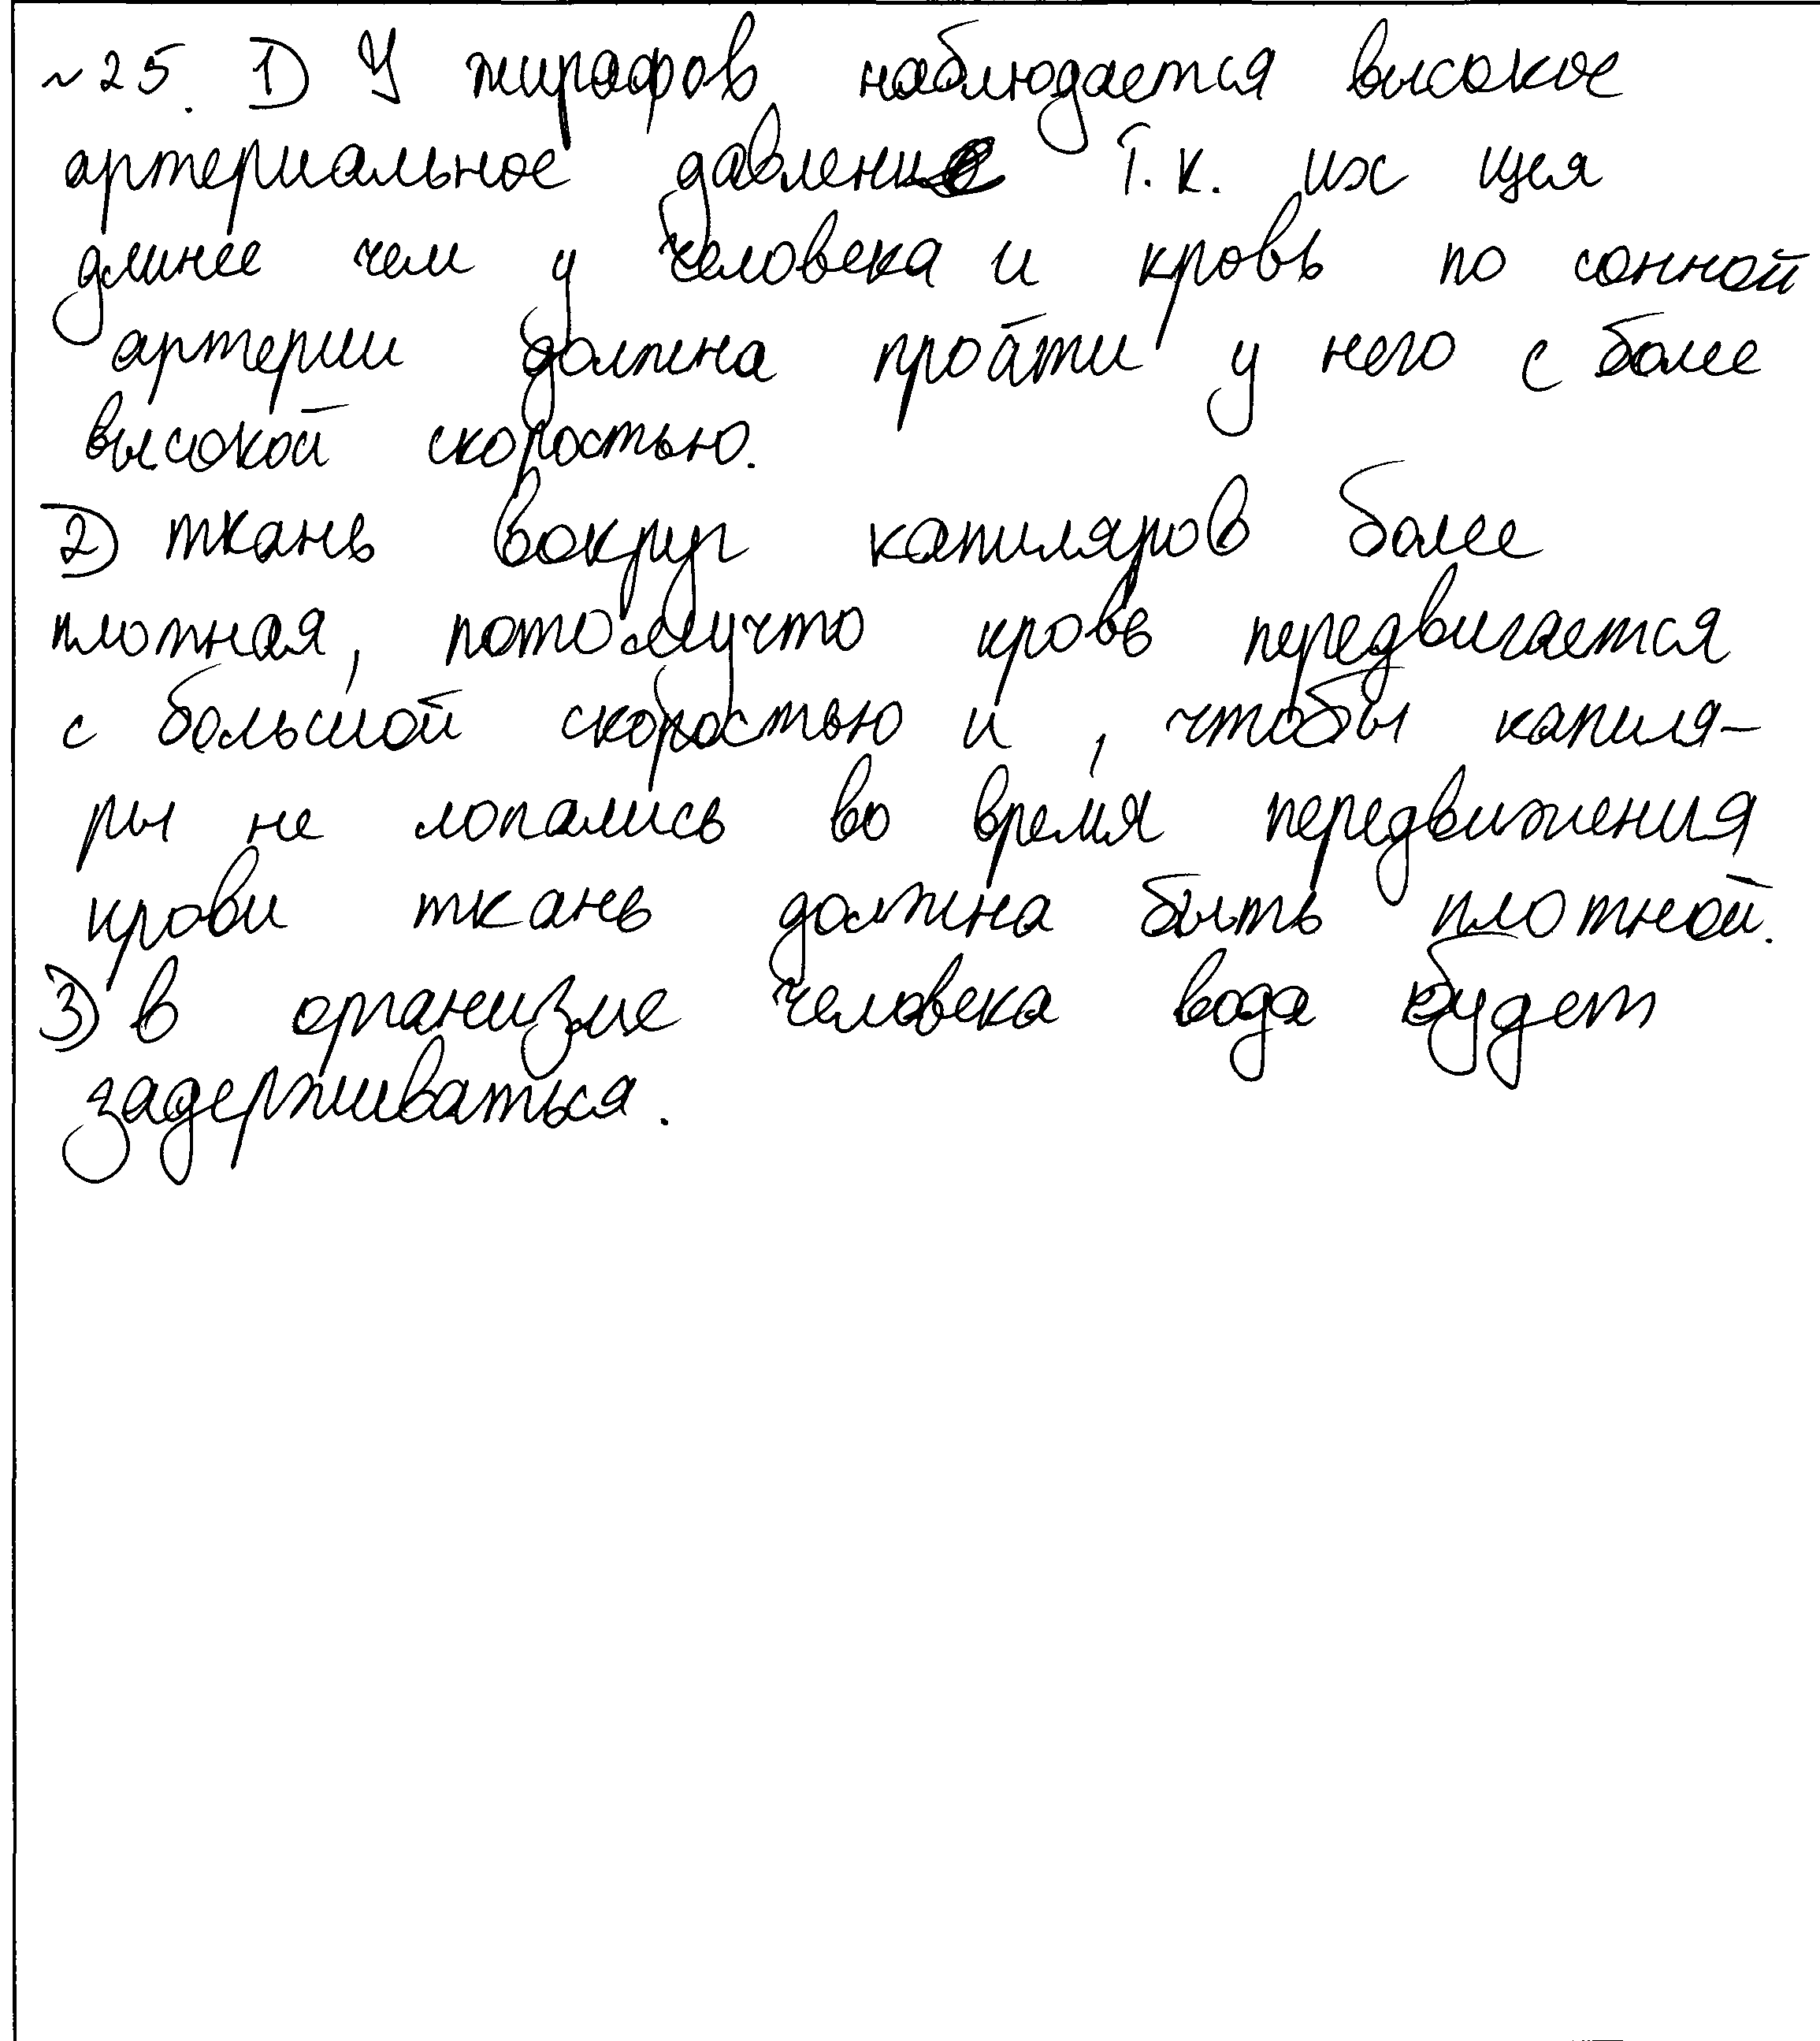 ~25. 1) У жирафов наблюдается высокое
артериальное давление т.к. их шея
длинее чем у человека и кровь по сонной
артерии должна пройти у него с более
высокой скоростью.
2) ткань вокруг капиляров более
плотная, потомучто кровь передвигается
с большой скоростью и , чтобы капиля-
ры не лопались во время передвижения
крови ткань должна быть плотной.
3) в организме человека вода будет
задерживаться.